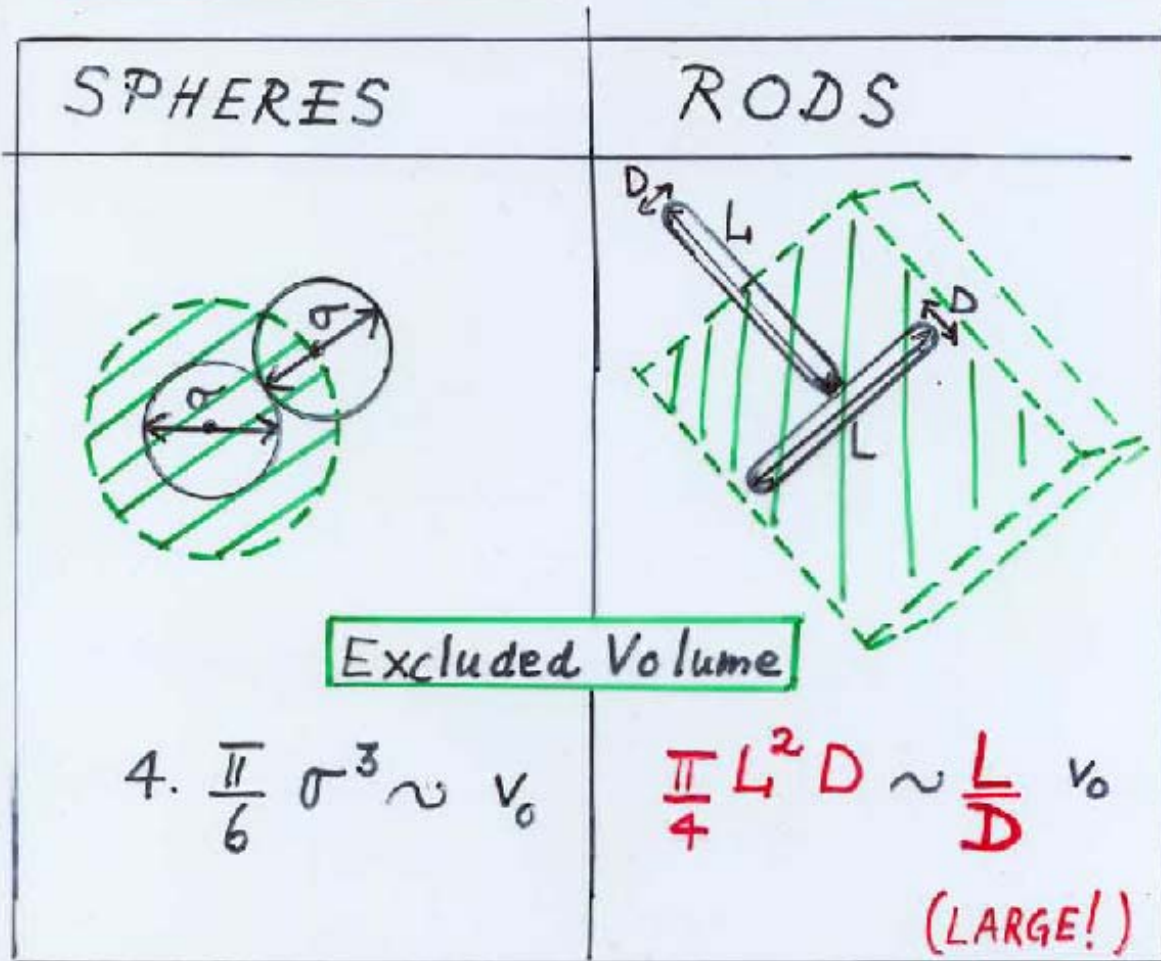 SPHERES
RODS
σ
σ
D
L
D
L
Excluded Volume
4. π/6 σ³ ~ v₀
π/4 L² D ~ L/D v₀
(LARGE!)